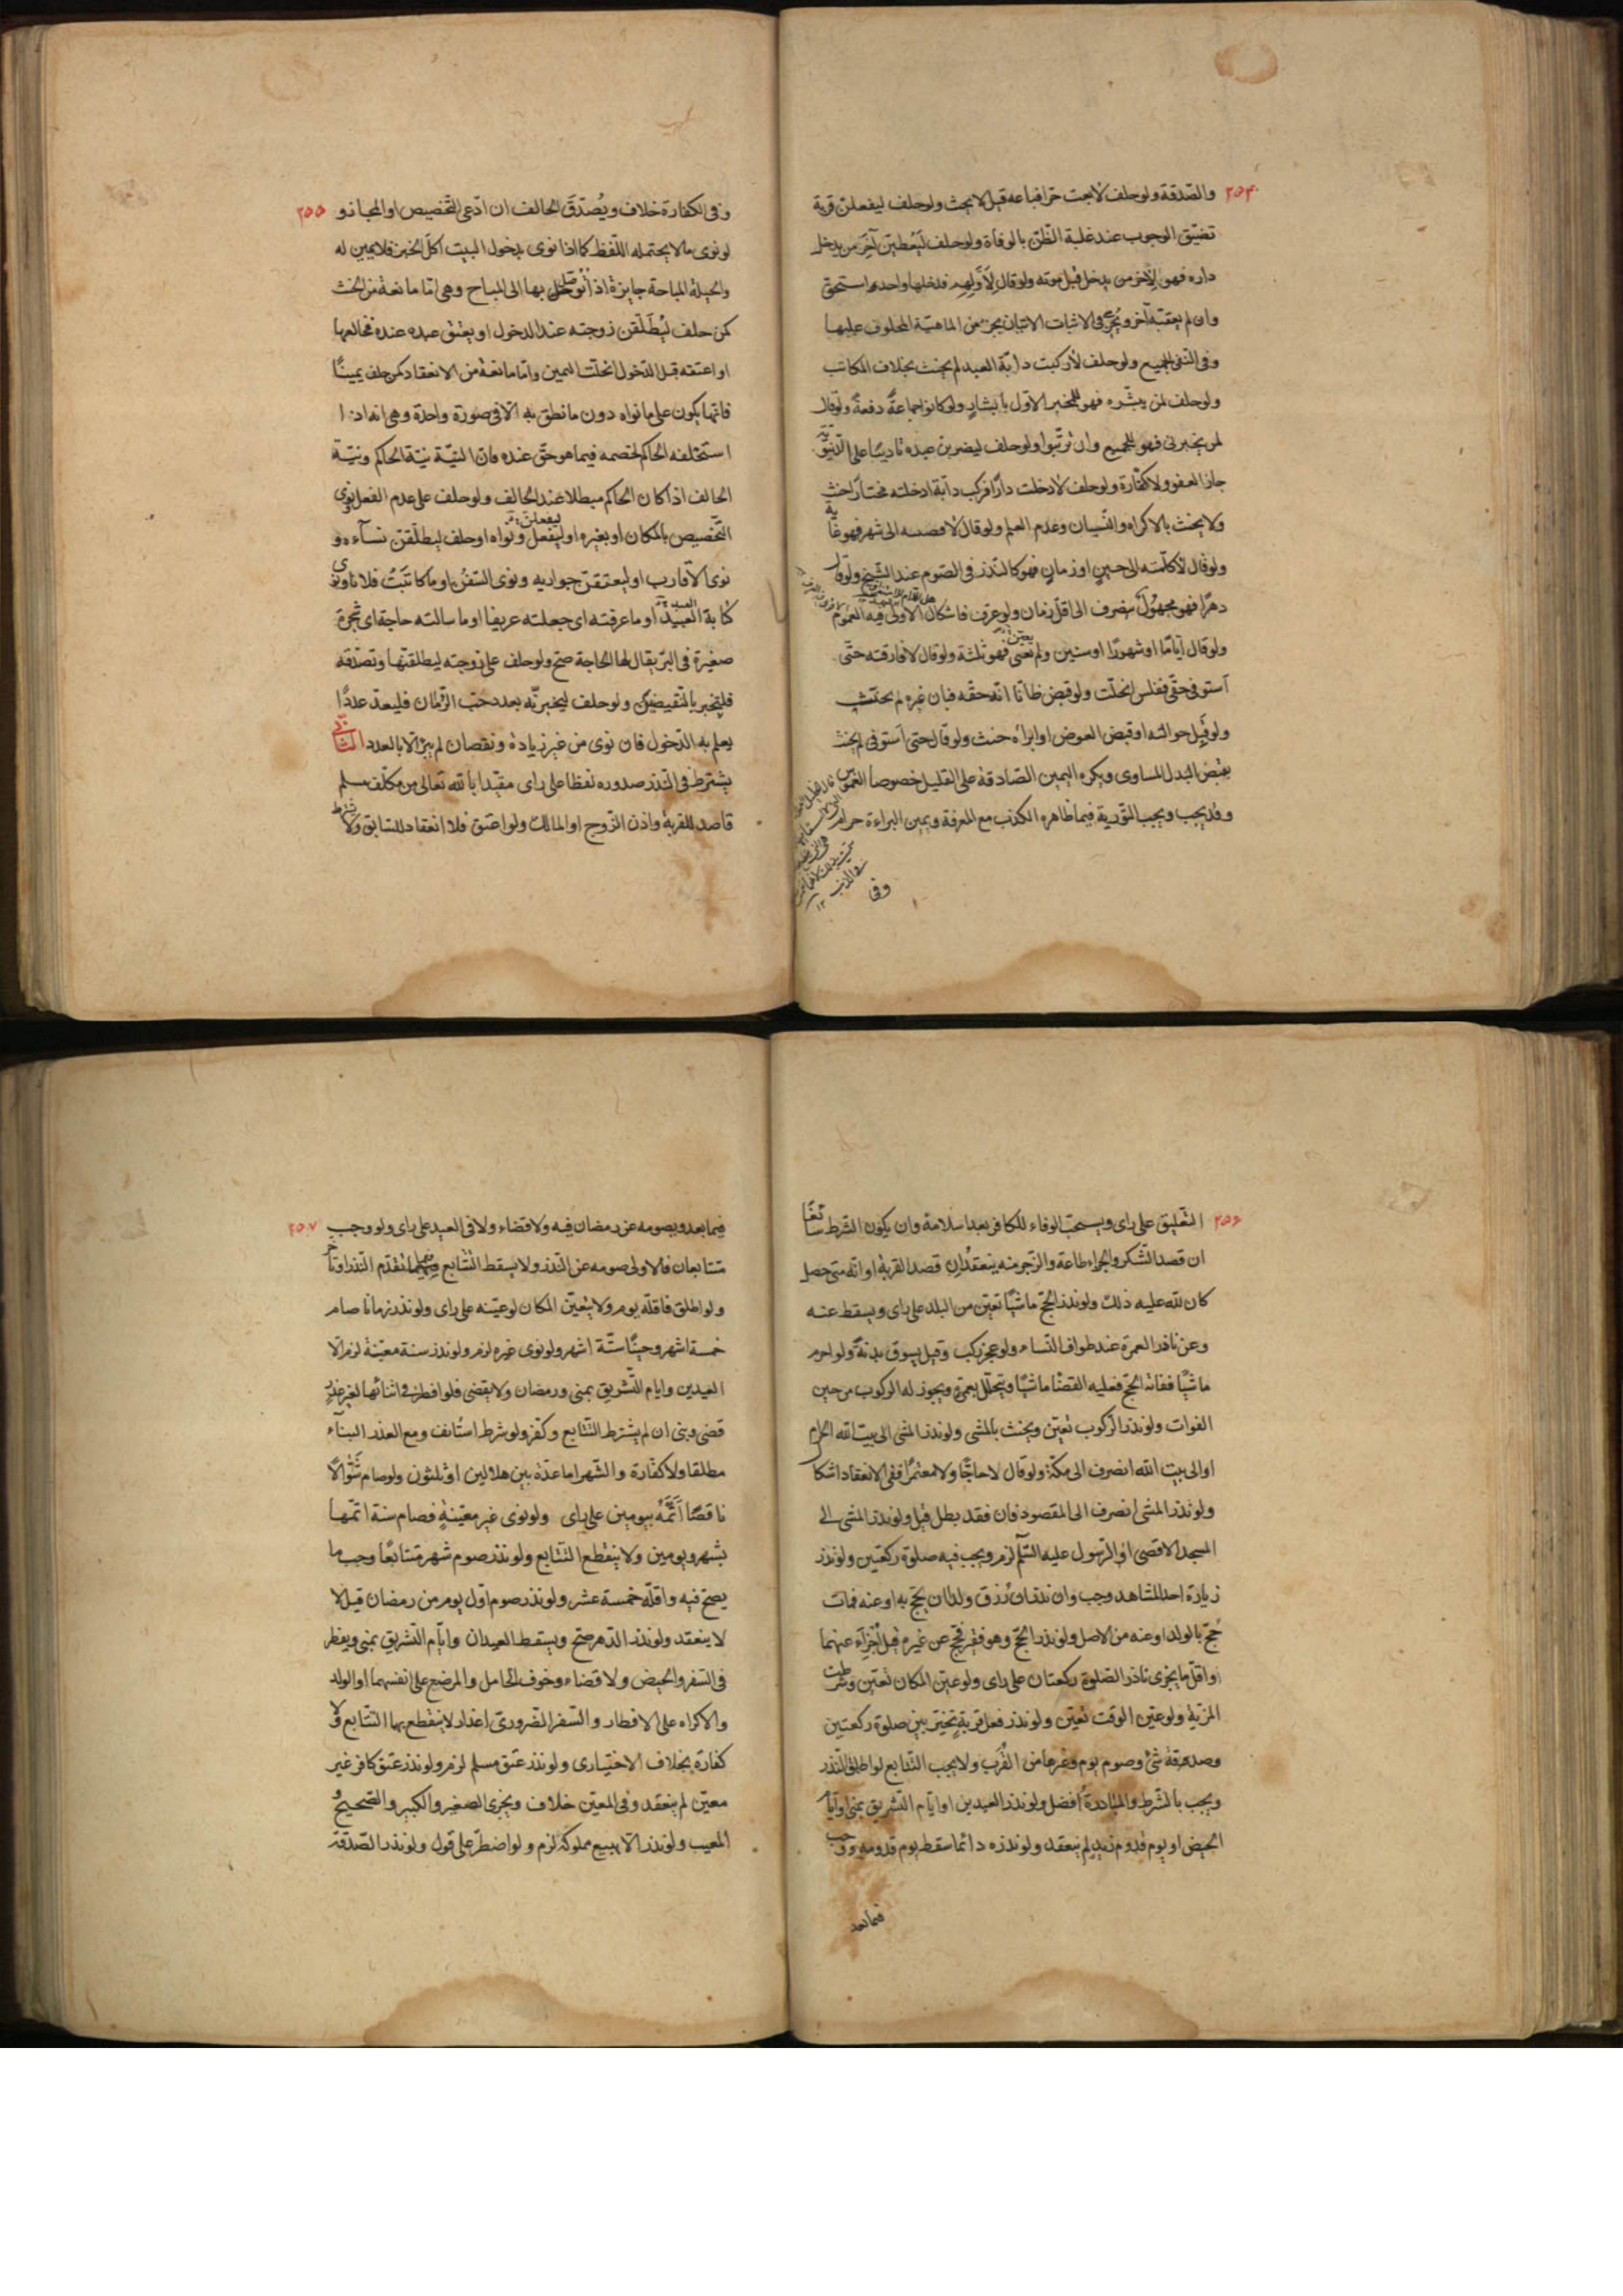 ٢٥٤
والصّدقة ولو حلف لابعت حرا فباعه قيل لايحنث ولو حلف ليفعلن قربة
تضيّق الوجوب عند غلبة الظّن بالوفاة ولو حلف ليُعطين آخر من يدخل
داره فهو لآخر من يدخل قبل موته ولو قال لأوّلهم فدخلها واحد استحق
وان لم يعقبه آخر ويُجزئ فى الاثبات الاتيان بجزء من الماهيّة المحلوف عليها
وفى النّفى الجميع ولو حلف لاركبت دابّة العبد لم يحنث بخلاف المكاتب
ولو حلف لمن يبشّره فهو للمخبر الاول بالبشارة ولو كانوا جماعةً دفعةً ولو قال
لمن يخبرنى فهو للجميع وان ترتّبوا ولو حلف ليضربن عبده تاديبًا على الدّنيويّة
جاز العفو ولا كفّارة ولو حلف لادخلت دارًا فركب دابة ادخلته مختارًا حنث
ولا يحنث بالاكراه والنّسيان وعدم العلم ولو قال لا الى شهر فهو غاية
ولو قال لاكلمته الى حينٍ او زمانٍ فهو كالنّذر فى الصّوم عند الشّيخ ولو قال
دهرًا فهو مجهولٌ ينصرف الى اقل زمان ولو عرّف فاشكال الاولى فيه العموم
ولو قال أيّامًا او شهورًا او سنين ولم يعيّن فهو ثلثة ولو قال لافارقته حتّى
استوفى حقّى ففلس انحلّت ولو قبض ظانّا انّه حقّه فبان غيره لم يحنث
ولو قبل حوالته او قبض العوض او ابراه حنث ولو قال حتى استوفى لم يحنث
بقبض البدل المساوى ويكره اليمين الصّادقة على القليل خصوصا الغموس
وقد يجب ويجب التّورية فيما ظاهره الكذب مع المعرفة ويمين البراءة حرام
وفى
٢٥٥
وفى الكفارة خلاف ويُصدّق الحالف ان ادّعى التّخصيص او المجاز و
لو نوى ما لا يحتمله اللّفظ كما اذا نوى بدخول البيت اكل الخبز فلا يمين له
والحيلة المباحة جايزة اذا توصّل بها الى المباح وهى امّا مانعة من الحنث
كمن حلف ليُطلّقن زوجته عند الدخول او يعتق عبده عنده فخالعها
او اعتقه قبل الدّخول انحلّت اليمين وامّا مانعة من الانعقاد كمن حلف يمينًا
فانّها يكون على ما نواه دون ما نطق به الّا فى صورة واحدة وهى انه اذا
استحلفه الحاكم لخصمه فيما هو حقّ عنده فانّ النيّة نيّة الحاكم ونيّة
الحالف اذا كان الحاكم مبطلا عند الحالف ولو حلف على عدم الفعل نوى
التّخصيص بالمكان او بغيره او ليفعلن ونواه او حلف ليطلّقن نساءه و
نوى الاقارب او ليعتقنّ جواريه ونوى السّفن او ما كاتبتُ فلانا ونوى
كتابة العبيد او ما عرفته اى جعلته عريفا او ما سالته حاجة اى شجرة
صغيرة فى البرّ يقال لها الحاجة صحّ ولو حلف على زوجته ليطلقنّها وتصدّقه
فلتخبر بالنّقيضين ولو حلف ليخبرنّه بعدد حبّ الرّمان فليعدّ عددًا
يعلم به الدّخول فان نوى من غير زيادة ونقصان لم يبرّ الّا بالعدد الثّانى
يشترط فى النّذر صدوره لفظا على راى مقيّدا بالله تعالى من مكلّف مسلم
قاصد للقربة واذن الزّوج او المالك ولو اعتق فلا انعقاد للسّابق ولا يشترط
٢٥٦
التّعليق على راى ويستحبّ الوفاء للكافر بعد اسلامة وان يكون الشّرط سائغًا
ان قصد الشّكر والجزاء طاعة والزّجر منه ينعقد ان قصد القربة او انّه متى حصل
كان لله عليه ذلك ولو نذر الحجّ ماشيًا تعيّن من البلد على راى ويسقط عنه
وعن ناذر العمرة عند طواف النّساء ولو عجز ركب وقيل يسوق بدنةً ولو احرم
ماشيًا ففاته الحجّ فعليه القضا ماشيًا ويتحلّل بعمرة ويجوز له الركوب من حين
الفوات ولو نذر الرّكوب تعيّن ويحنث بالمشى ولو نذر المشى الى بيت الله الحرام
او الى بيت الله انصرف الى مكّة ولو قال لا حاجًّا ولا معتمرًا ففى الانعقاد اشكال
ولو نذر المشى انصرف الى المقصود فان فقد بطل قيل ولو نذر المشى الى
المسجد الاقصى او الرّسول عليه السّلم لزم ويجب فيه صلوة ركعتين ولو نذر
زيارة احد المشاهد وجب وان نذر ان رُزق ولدا ان يحجّ به او عنه فمات
حُجّ بالولد او عنه من الاصل ولو نذر الحجّ وهو فقير فحجّ عن غيره قيل اجزاء عنهما
واقلّ ما يجزى ناذر الصّلوة ركعتان على راى ولو عيّن المكان تعيّن وشرطت
المزيّة ولو عيّن الوقت تعيّن ولو نذر فعل قربةٍ تخيّر بين صلوة ركعتين
وصدقة شئ وصوم يوم وغيرها من القُرَب ولا يجب التّتابع لو اطلق النّذر
ويجب بالشّرط والمبادرةُ افضل ولو نذر العيدين او ايّام التّشريق بمنى وايّام
الحيض او يوم قدوم زيد لم ينعقد ولو نذره دائما سقط يوم قدومه ووجب
فيما بعد
٢٥٧
فيما بعد ويصومه عن رمضان فيه ولا قضاء ولا فى العيد على راى ولو وجب
متتابعان فالاولى صومه عن النّذر ولا يسقط التّتابع فيهما تقدّم النّذر او تاخّر
ولو اطلق فاقلّه يوم ولا يتعيّن المكان لو عيّنه على راى ولو نذر زمانا صام
خمسة اشهر وحينًا ستّة اشهر ولو نوى غيره لزم ولو نذر سنة معيّنة لزم الّا
العيدين وايام التّشريق بمنى ورمضان ولا يقضى فلو افطر فى اثنائها لغير عذر
قضى وبنى ان لم يشترط التّتابع وكفّر ولو شرط استانف ومع العذر البناء
مطلقا ولا كفّارة والشّهر اما عدّة بين هلالين او ثلثون ولو صام شوّالًا
ناقصًا اتمّه بيومين على راى ولو نوى غير معيّنةٍ فصام سنة اتمّها
بشهر ويومين ولا ينقطع التّتابع ولو نذر صوم شهر متتابعًا وجب ما
يصح فيه واقلّه خمسة عشر ولو نذر صوم اوّل يوم من رمضان قيل لا
لا ينعقد ولو نذر الدّهر صحّ ويسقط العيدان وايّام التّشريق بمنى ويفطر
فى السّفر والحيض ولا قضاء وخوف الحامل والمرضع على نفسهما او الولد
والاكراه على الافطار والسّفر الضّرورىّ اعذار لا ينقطع بها التّتابع ولا
كفارة بخلاف الاختيارى ولو نذر عتق مسلم لزم ولو نذر عتق كافر غير
معيّن لم ينعقد وفى المعيّن خلاف ويجزى الصغير والكبير والصّحيح و
المعيب ولو نذر الّا يبيع مملوكه لزم ولو اضطرّ على قول ولو نذر الصّدقة